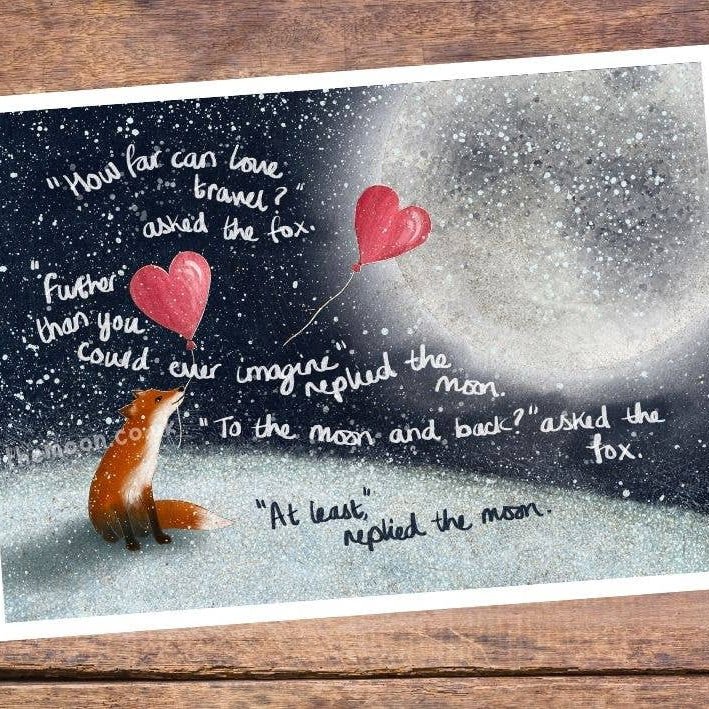 "How far can love
travel?"
asked the fox.
"Further
than you
could ever imagine",
replied the
moon.
"To the moon and back?" asked the
fox.
"At least",
replied the moon.